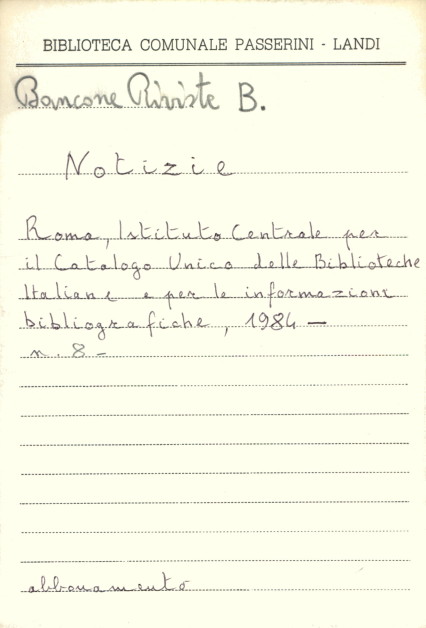 BIBLIOTECA COMUNALE PASSERINI - LANDI
Bancone Riviste B.
Notizie
Roma, Istituto Centrale per
il Catalogo Unico delle Biblioteche
Italiane e per le informazioni
bibliografiche, 1984 —
n. 8 -
abbonamento